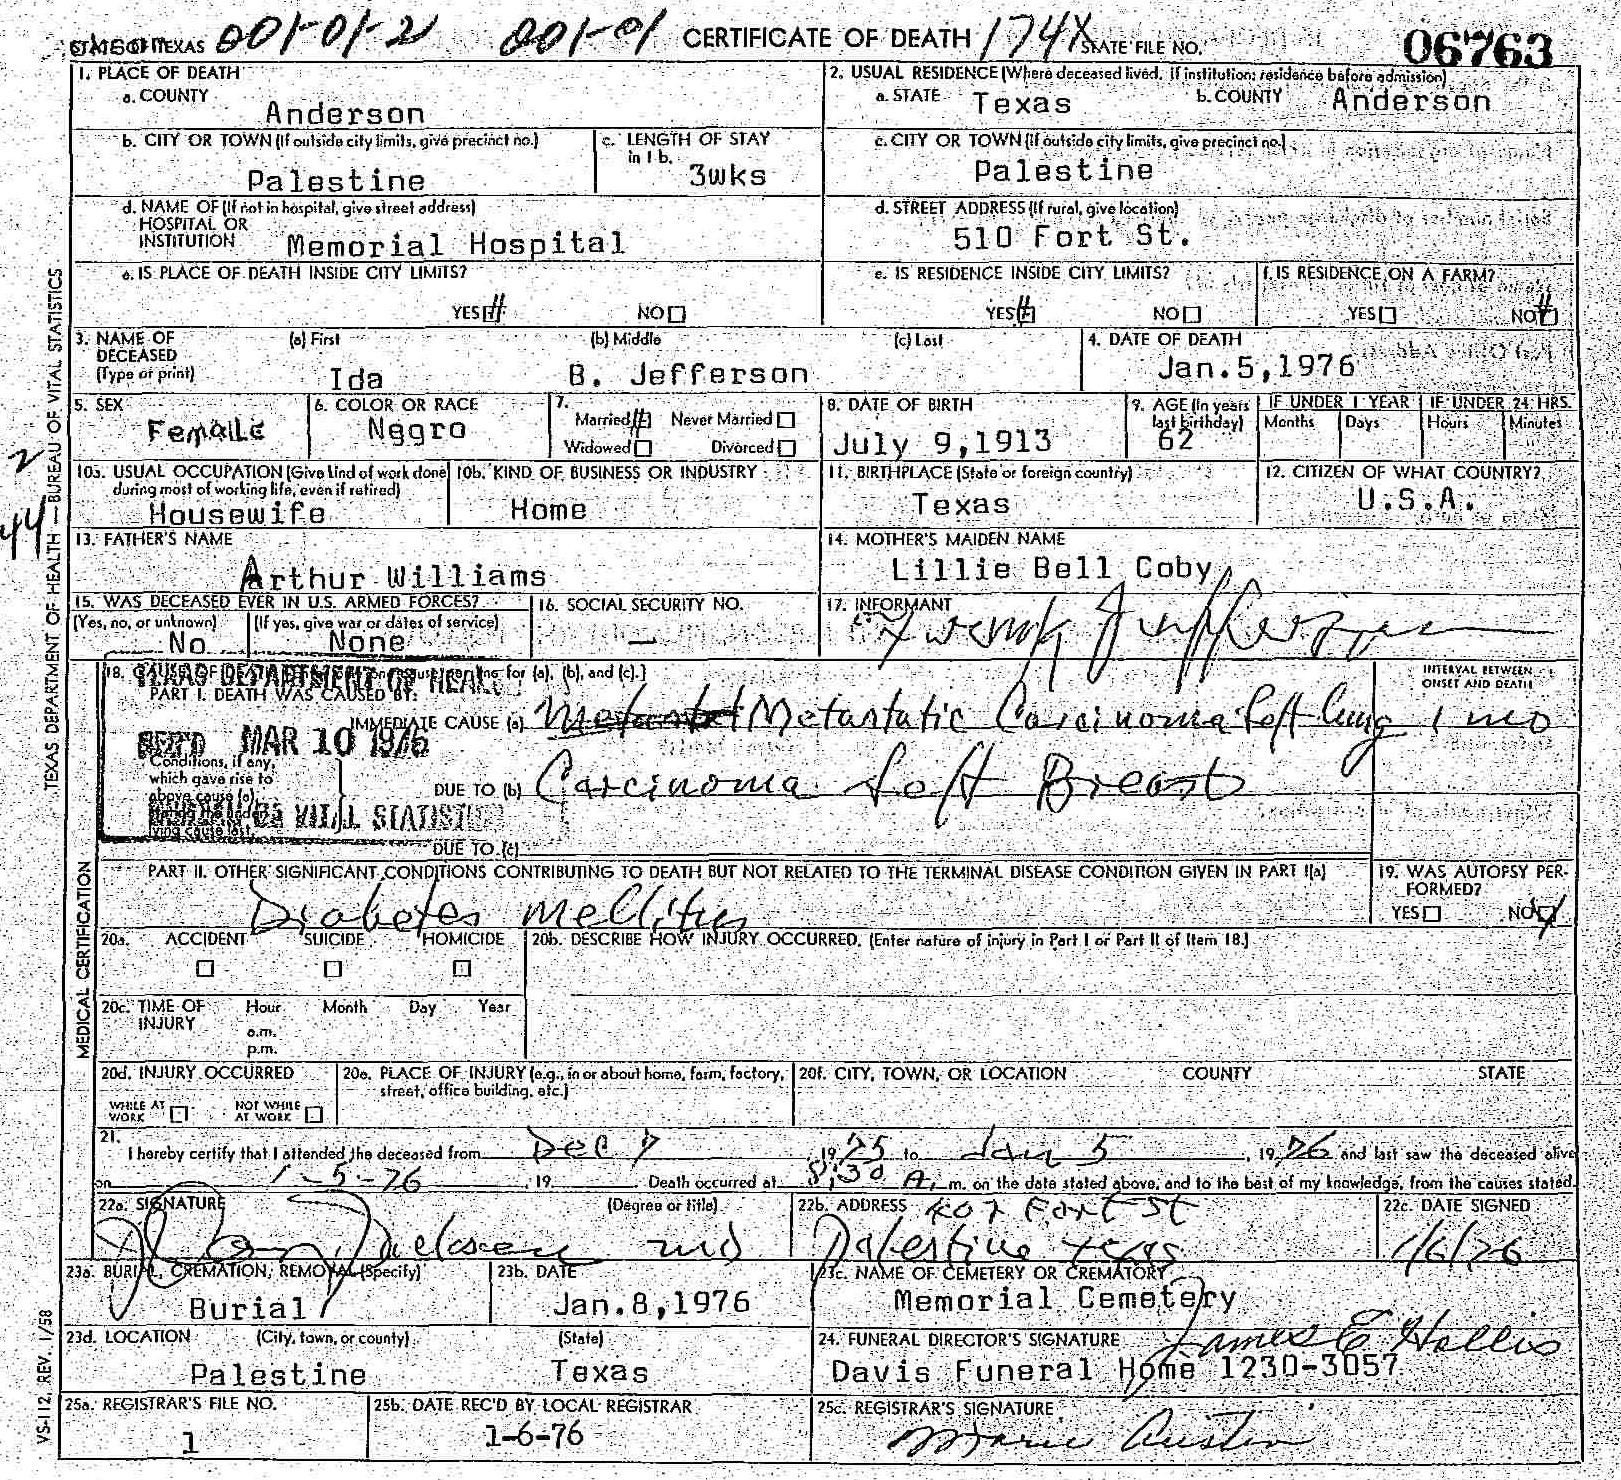 STATE OF TEXAS 001-01-2 001-01 CERTIFICATE OF DEATH 174X STATE FILE NO. 06763
1. PLACE OF DEATH
a. COUNTY
Anderson
2. USUAL RESIDENCE (Where deceased lived. If institution: residence before admission)
a. STATE Texas b. COUNTY Anderson
b. CITY OR TOWN (If outside city limits, give precinct no.)
Palestine
c. LENGTH OF STAY
in 1 b.
3wks
c. CITY OR TOWN (If outside city limits, give precinct no.)
Palestine
d. NAME OF (If not in hospital, give street address)
HOSPITAL OR
INSTITUTION Memorial Hospital
d. STREET ADDRESS (If rural, give location)
510 Fort St.
e. IS PLACE OF DEATH INSIDE CITY LIMITS?
YES NO
e. IS RESIDENCE INSIDE CITY LIMITS?
YES NO
f. IS RESIDENCE ON A FARM?
YES NO
3. NAME OF
DECEASED
(Type or print)
(a) First (b) Middle (c) Last
Ida B. Jefferson
4. DATE OF DEATH
Jan.5,1976
5. SEX
Female
6. COLOR OR RACE
Nggro
7.
Married Never Married
Widowed Divorced
8. DATE OF BIRTH
July 9,1913
9. AGE (In years
last birthday)
62
IF UNDER 1 YEAR IF UNDER 24 HRS.
Months Days Hours Minutes
10a. USUAL OCCUPATION (Give kind of work done
during most of working life, even if retired)
Housewife
10b. KIND OF BUSINESS OR INDUSTRY
Home
11. BIRTHPLACE (State or foreign country)
Texas
12. CITIZEN OF WHAT COUNTRY?
U.S.A.
13. FATHER'S NAME
Arthur Williams
14. MOTHER'S MAIDEN NAME
Lillie Bell Coby
15. WAS DECEASED EVER IN U.S. ARMED FORCES?
(Yes, no, or unknown) (If yes, give war or dates of service)
No None
16. SOCIAL SECURITY NO.
—
17. INFORMANT
Jefferson
18. for (a), (b), and (c).]
TEXAS DEPARTMENT OF HEALTH
PART I. DEATH WAS CAUSED BY:
INTERVAL BETWEEN
ONSET AND DEATH
IMMEDIATE CAUSE (a) Metastatic Carcinoma left lung 1 mo
REC'D MAR 10 1976
Conditions, if any,
which gave rise to
above cause (a)
stating the under-
lying cause last.
DUE TO (b) Carcinoma Left Breast
BUREAU OF VITAL STATISTICS
DUE TO (c)
PART II. OTHER SIGNIFICANT CONDITIONS CONTRIBUTING TO DEATH BUT NOT RELATED TO THE TERMINAL DISEASE CONDITION GIVEN IN PART I(a)
Diabetes Mellitus
19. WAS AUTOPSY PER-
FORMED?
YES NO
20a. ACCIDENT SUICIDE HOMICIDE
20b. DESCRIBE HOW INJURY OCCURRED. (Enter nature of injury in Part I or Part II of Item 18.)
20c. TIME OF
INJURY
Hour Month Day Year
a.m.
p.m.
20d. INJURY OCCURRED
WHILE AT
WORK
NOT WHILE
AT WORK
20e. PLACE OF INJURY (e.g., in or about home, farm, factory,
street, office building, etc.)
20f. CITY, TOWN, OR LOCATION COUNTY STATE
21.
I hereby certify that I attended the deceased from Dec 7, 1975 to Jan 5, 1976 and last saw the deceased alive
on 1-5-76, 19 . Death occurred at 8:30 A. m. on the date stated above, and to the best of my knowledge, from the causes stated.
22a. SIGNATURE (Degree or title)
MD
22b. ADDRESS 407 Fort St
Palestine Texas
22c. DATE SIGNED
1/6/76
23a. BURIAL, CREMATION, REMOVAL (Specify)
Burial
23b. DATE
Jan.8,1976
23c. NAME OF CEMETERY OR CREMATORY
Memorial Cemetery
23d. LOCATION (City, town, or county) (State)
Palestine Texas
24. FUNERAL DIRECTOR'S SIGNATURE James E Hollis
Davis Funeral Home 1230-3057
25a. REGISTRAR'S FILE NO.
1
25b. DATE REC'D BY LOCAL REGISTRAR
1-6-76
25c. REGISTRAR'S SIGNATURE
Marie Austin
TEXAS DEPARTMENT OF HEALTH — BUREAU OF VITAL STATISTICS
2
44
MEDICAL CERTIFICATION
VS-112, REV. 1/58